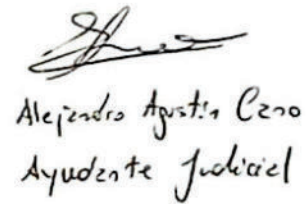 Alejandro Agustín Cano
Ayudante Judicial